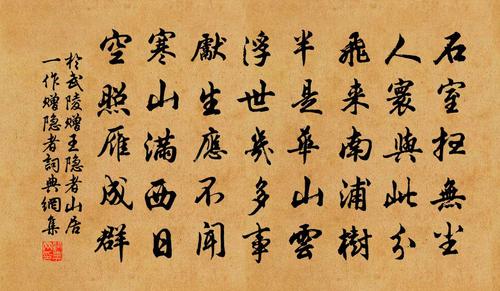 石室扫無尘
人寰與此分
飛来南浦樹
半是華山雲
浮世幾多事
獻生應不聞
寒山滿西日
空照雁成群
於武陵赠王隐者山居
一作赠隐者詞典網集